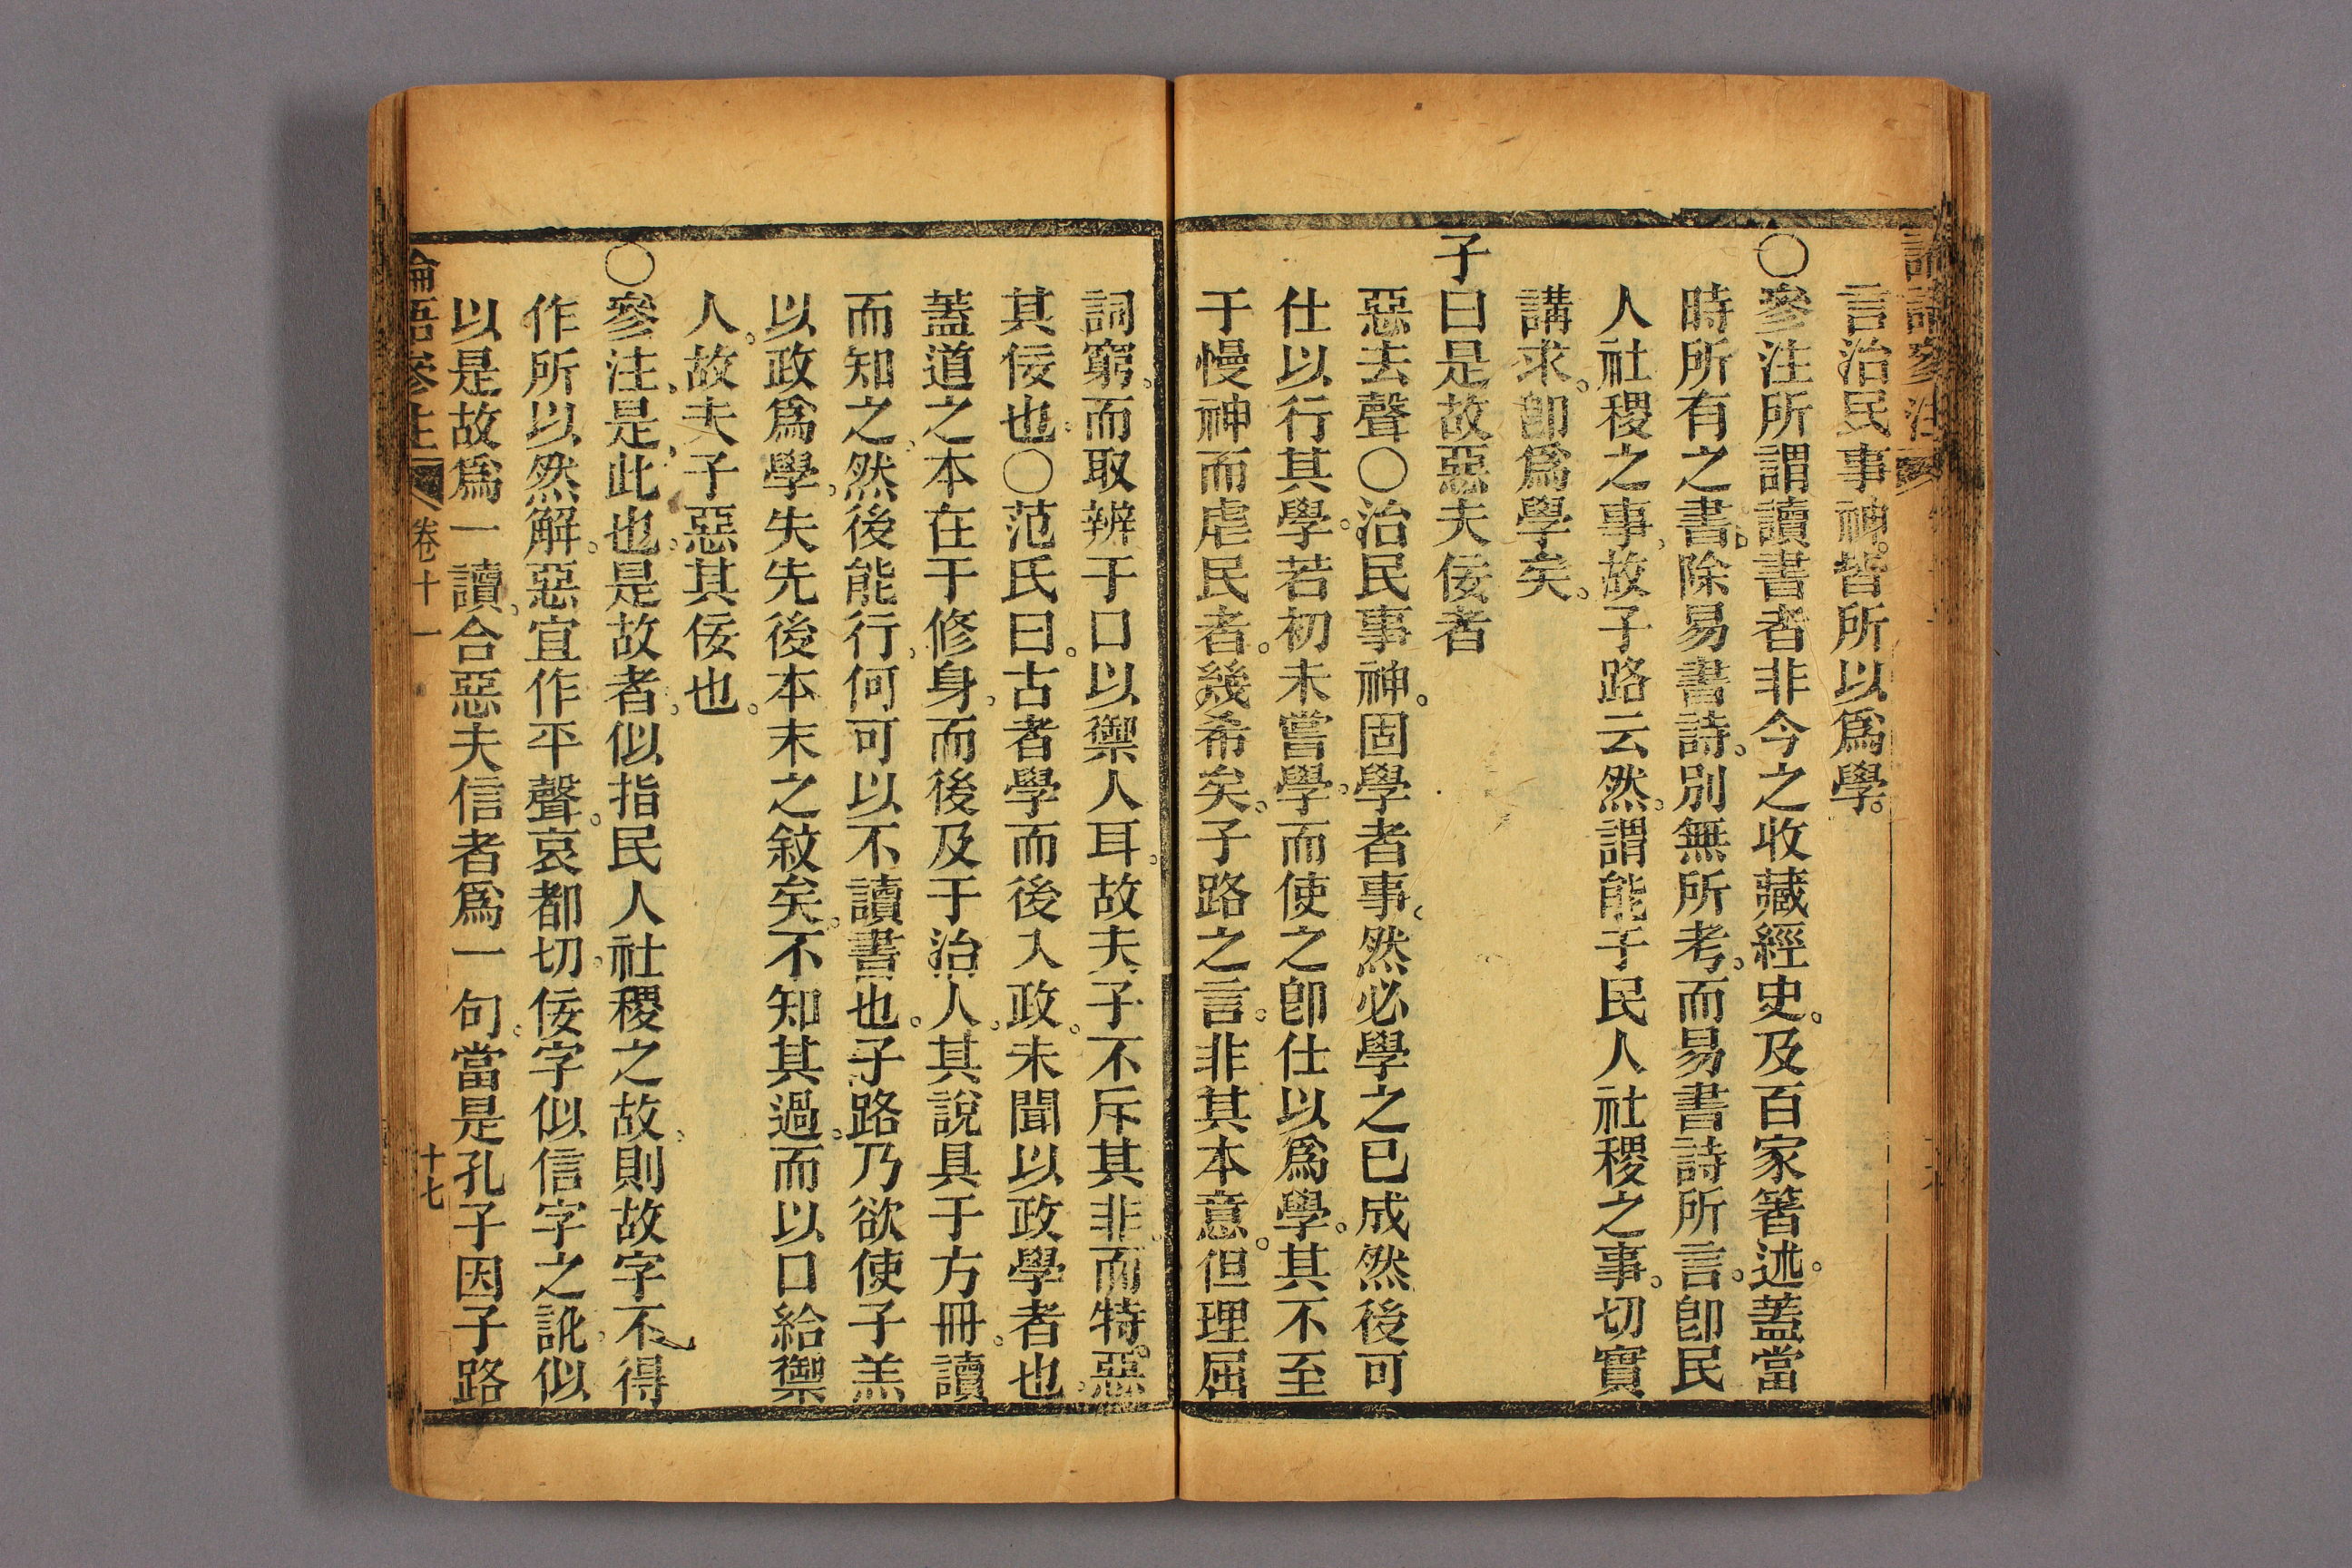 言治民事神。皆所以爲學。
○參注所謂讀書者非今之收藏經史。及百家箸述。蓋當
時所有之書。除易書詩。別無所考。而易書詩所言。卽民
人社稷之事。故子路云然。謂能于民人社稷之事。切實
講求。卽爲學矣。
子曰是故惡夫佞者
惡去聲○治民事神。固學者事。然必學之已成然後可
仕以行其學。若初未嘗學。而使之卽仕以爲學。其不至
于慢神而虐民者。幾希矣。子路之言。非其本意。但理屈
詞窮。而取辨于口以禦人耳。故夫子不斥其非。而特惡
其佞也。○范氏曰。古者學而後入政。未聞以政學者也。
蓋道之本在于修身。而後及于治人。其說具于方冊。讀
而知之。然後能行。何可以不讀書也。子路乃欲使子羔
以政爲學。失先後本末之敘矣。不知其過。而以口給禦
人。故夫子惡其佞也。
○參注。是。此也。是故者。似指民人社稷之故。則故字不得
作所以然解。惡宜作平聲。哀都切。佞字似信字之訛。似
以是故爲一讀。合惡夫信者爲一句。當是孔子因子路
論語參注 卷十一 十七